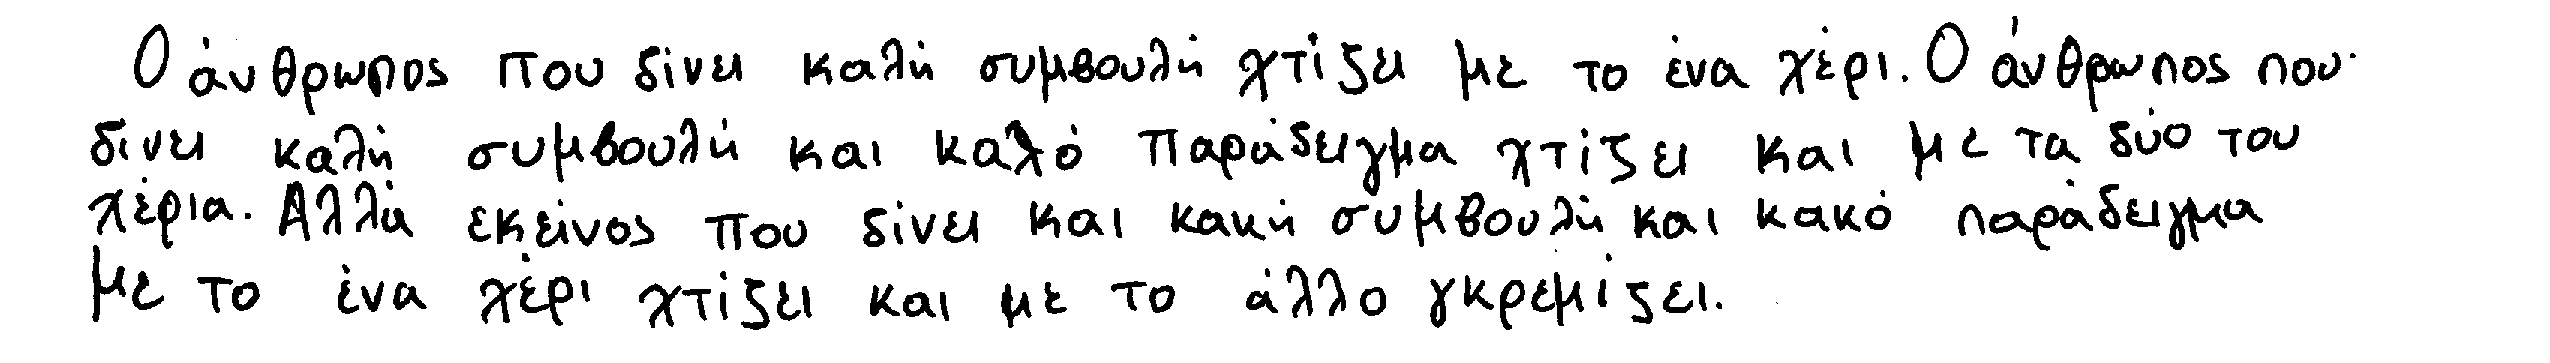 Ο άνθρωπος που δίνει καλή συμβουλή χτίζει με το ένα χέρι. Ο άνθρωπος που
δίνει καλή συμβουλή και καλό παράδειγμα χτίζει και με τα δύο του
χέρια. Αλλά εκείνος που δίνει και κακή συμβουλή και κακό παράδειγμα
με το ένα χέρι χτίζει και με το άλλο γκρεμίζει.